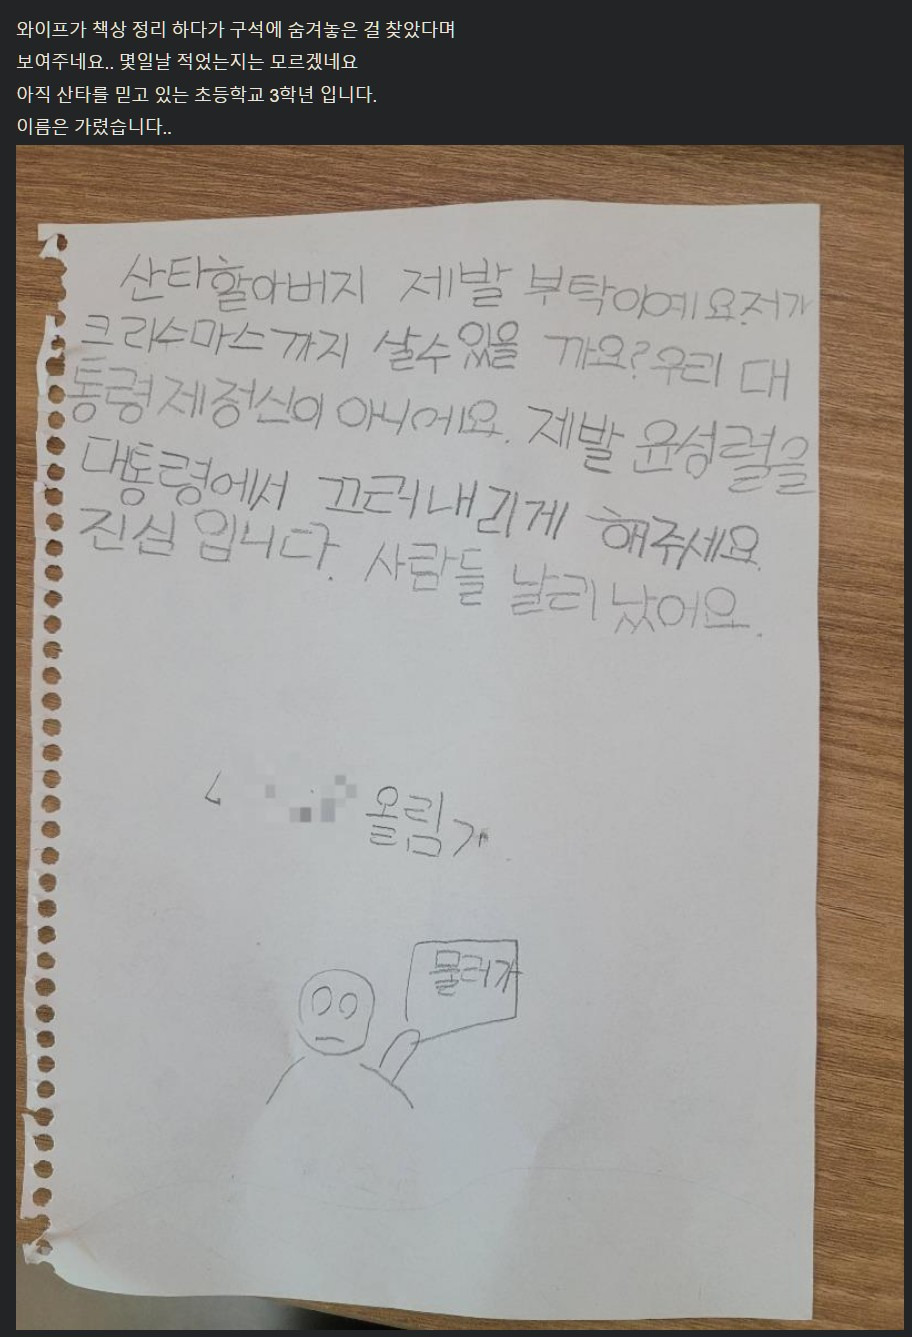 와이프가 책상 정리 하다가 구석에 숨겨놓은 걸 찾았다며
보여주네요.. 몇일날 적었는지는 모르겠네요
아직 산타를 믿고 있는 초등학교 3학년 입니다.
이름은 가렸습니다..
산타할아버지 제발 부탁이예요.저가
크리수마스까지 살수있을 까요?우리 대
통령 제정신이 아니에요. 제발 윤성렬을
대통령에서 끄러내리게 해주세요
진심 입니다. 사람들 날리 났어요.
올림
물러가